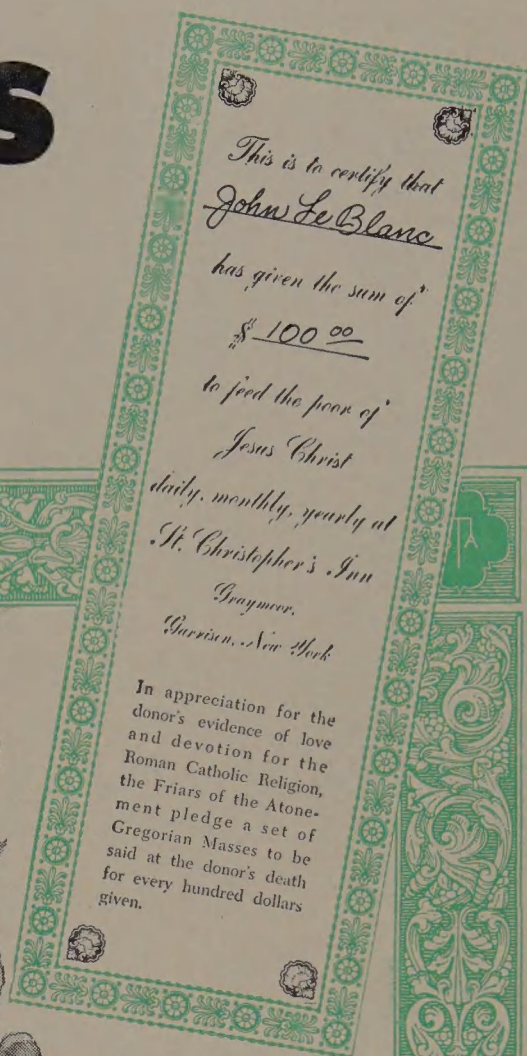 S
This is to certify that
John Le Blanc
has given the sum of
$ 100 00
to feed the poor of
Jesus Christ
daily, monthly, yearly at
St. Christopher's Inn
Graymoor,
Garrison, New York
In appreciation for the
donor's evidence of love
and devotion for the
Roman Catholic Religion,
the Friars of the Atone-
ment pledge a set of
Gregorian Masses to be
said at the donor's death
for every hundred dollars
given.